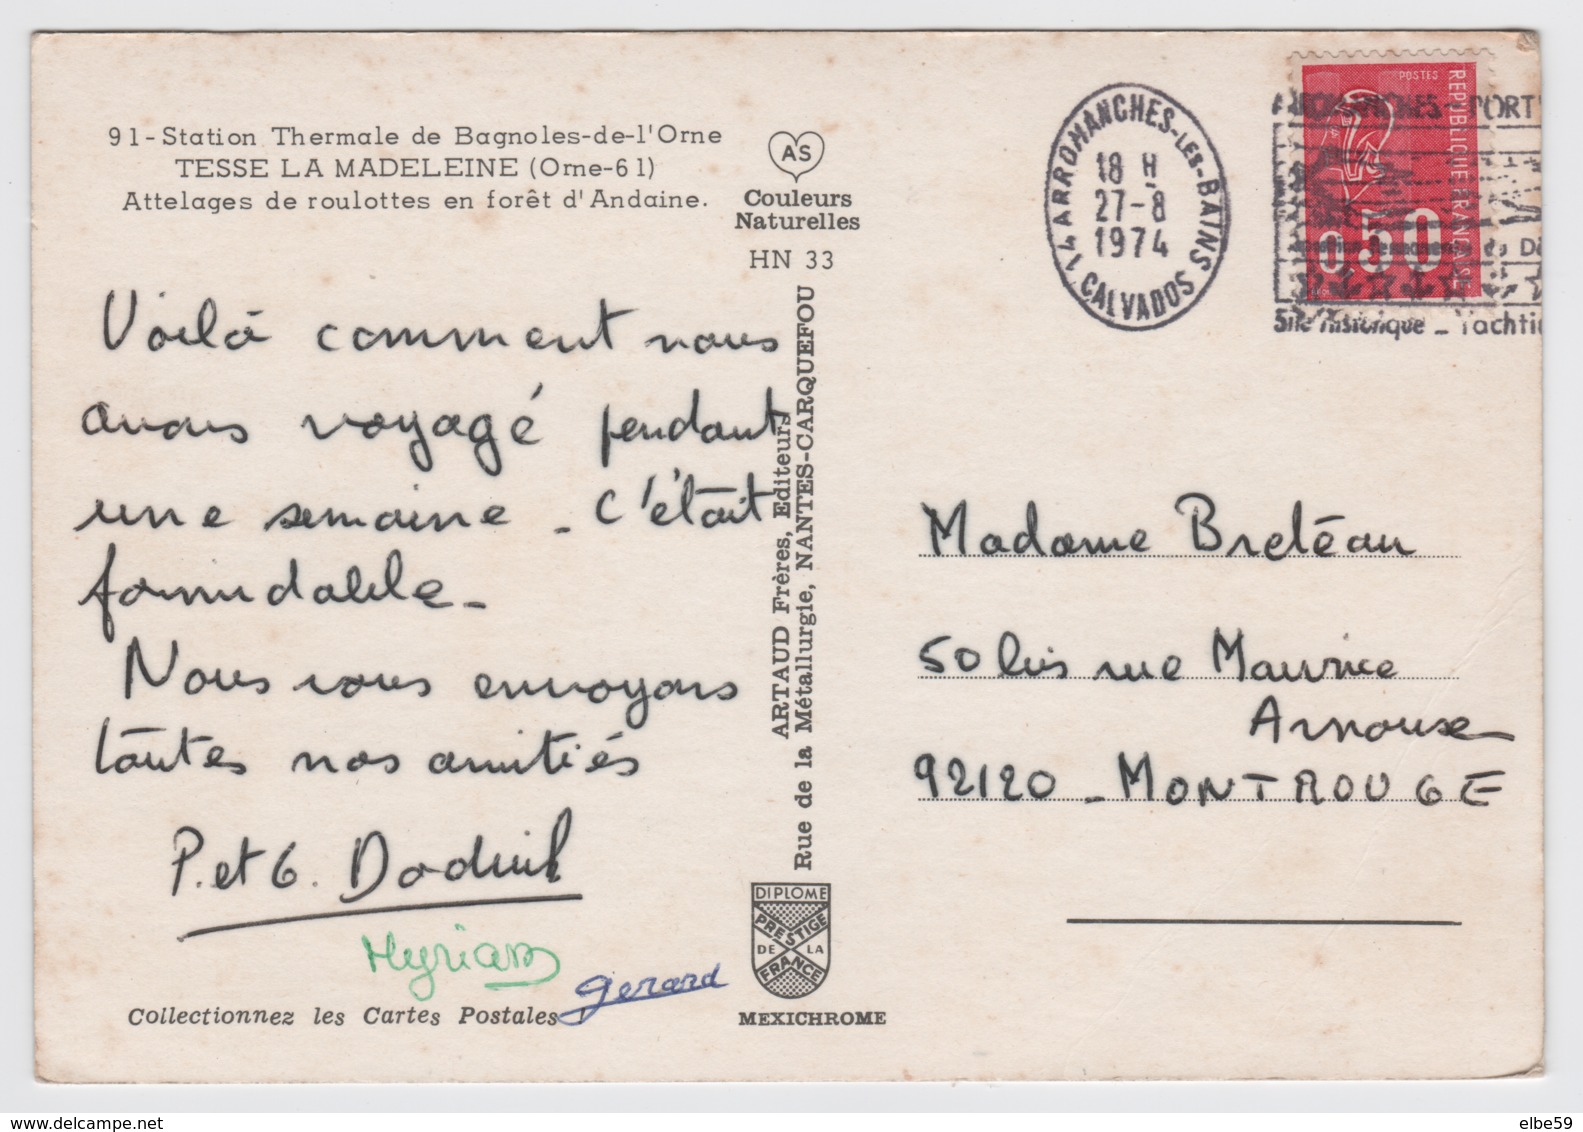 91-Station Thermale de Bagnoles-de-l'Orne
TESSE LA MADELEINE (Orne-61)
Attelages de roulottes en forêt d'Andaine.
AS
Couleurs
Naturelles
HN 33
14 ARROMANCHES-LES-BAINS
18 H
27-8
1974
CALVADOS
POSTES
REPUBLIQUE FRANCAISE
0.50
ARROMANCHES - PORT
Site historique - Yachti
Voilà comment nous
avons voyagé pendant
une semaine - C'était
formidable -
Nous vous envoyons
toutes nos amitiés
P. et G. Doduil
Myriam
gerard
Collectionnez les Cartes Postales
ARTAUD Frères, Editeurs
Rue de la Métallurgie, NANTES-CARQUEFOU
DIPLOME
PRESTIGE
DE LA
FRANCE
MEXICHROME
Madame Bretéau
50 bis rue Maurice
Arnoux
92120 - MONTROUGE
elbe59